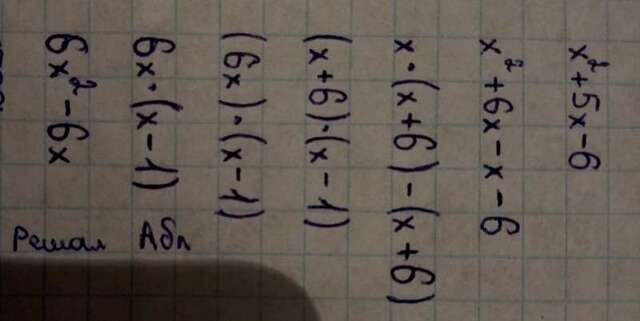 x²+5x-6
x²+6x-x-6
x·(x+6)-(x+6)
(x+6)·(x-1)
(6x)·(x-1)
6x·(x-1)
6x²-6x
Решал Абл